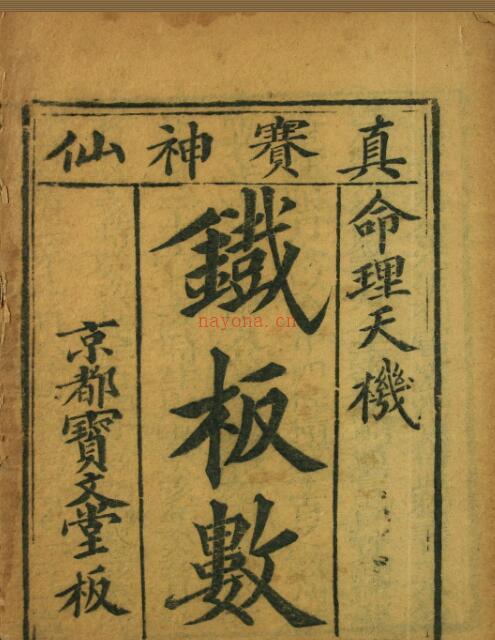 真賽神仙
命理天機
鐵板數
京都寶文堂板
nayona.cn